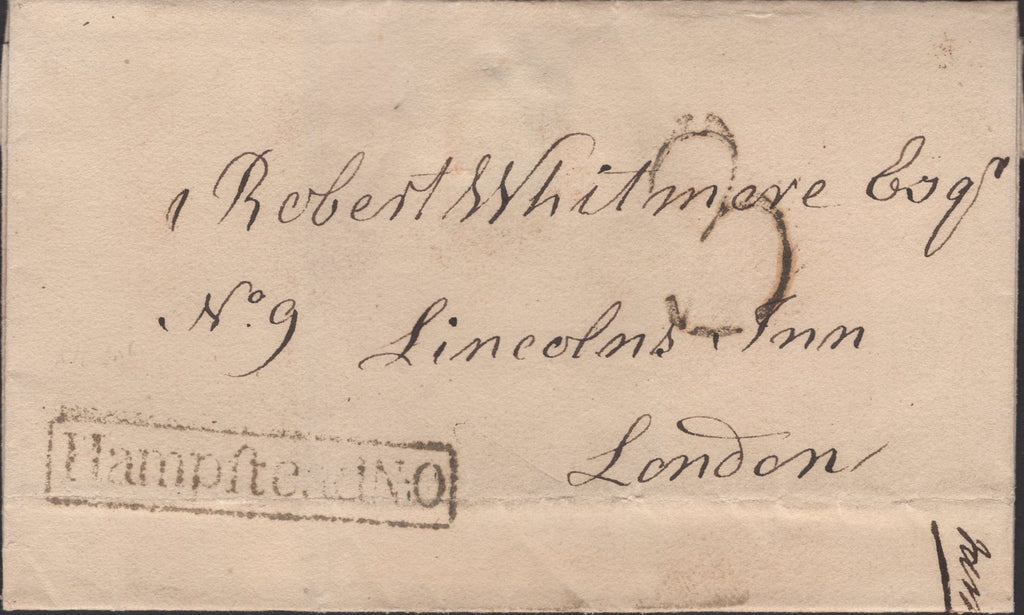 Robert Whitmore Esqr
No. 9 Lincolns Inn
London
3
HampſteadN:O